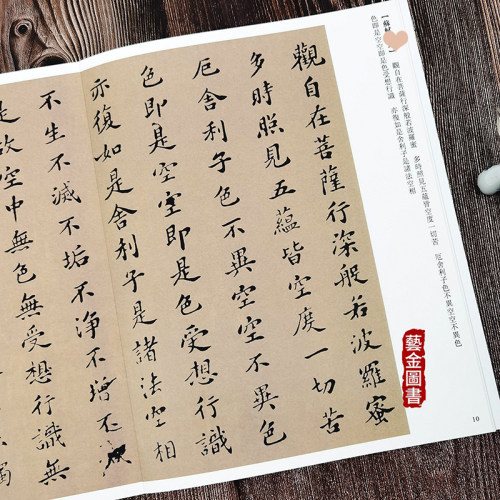 【蘇
觀自在菩薩行深般若波羅蜜　多時照見五蘊皆空度一切苦　厄舍利子色不異空空不異色
色即是空空即是色受想行識　亦復如是舍利子是諸法空相
觀自在菩薩行深般若波羅蜜
多時照見五蘊皆空度一切苦
厄舍利子色不異空空不異色
色即是空空即是色受想行識
亦復如是舍利子是諸法空相
不生不滅不垢不淨不增不減
是故空中無色無受想行識無
藝金圖書
10